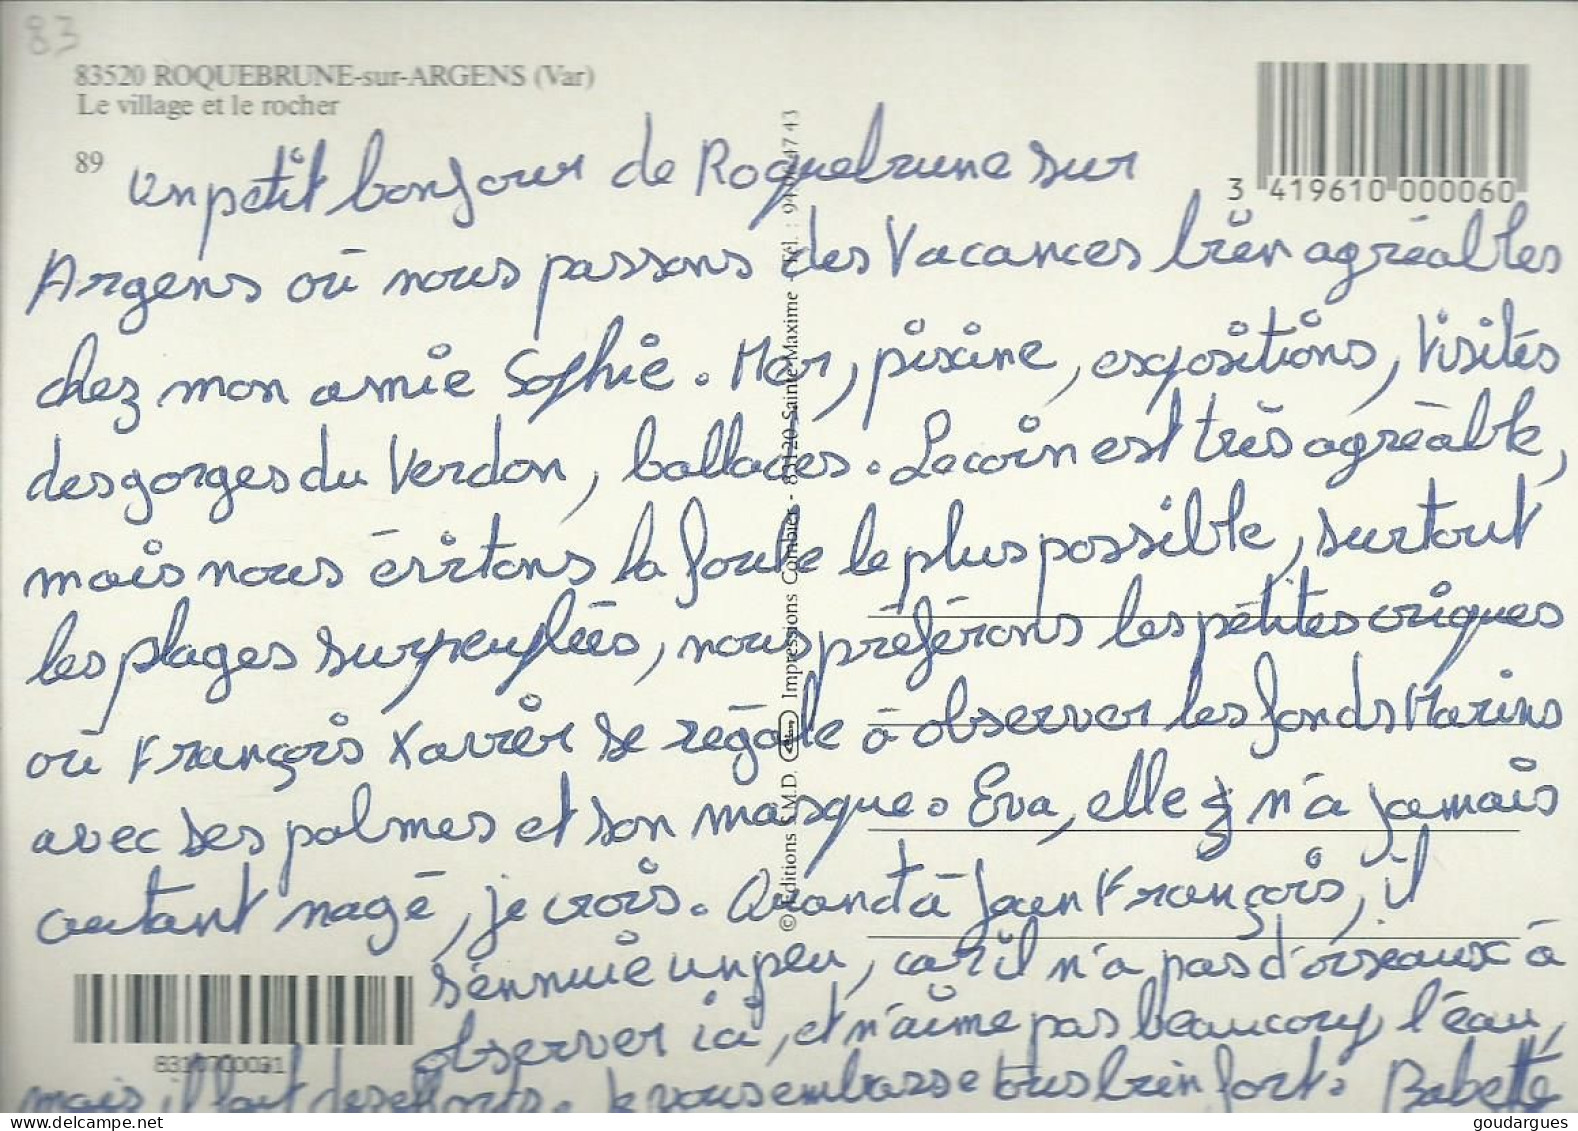 83
83520 ROQUEBRUNE-sur-ARGENS (Var)
Le village et le rocher
89
3 419610 000060
Un petit bonjour de Roquebrune sur
Argens où nous passons des Vacances bien agréables
chez mon amie Sophie. Mer, piscine, expositions, Visites
des gorges du Verdon, ballades. Le coin est très agréable,
mais nous évitons la foule le plus possible, surtout
les plages surpeuplées, nous préférons les petites criques
où François Xavier se régale à observer les fonds Marins
avec ses palmes et son masque. Eva, elle n'a jamais
autant nagé, je crois. Quand à Jean François, il
s'ennuie un peu, car il n'a pas d'oiseaux à
observer ici, et n'aime pas beaucoup l'eau,
mais il fait des efforts. Je vous embrasse tous bien fort. Babette
© Editions S.M.D. Impressions Combier - 83120 Sainte-Maxime - Tél. : 94 47 43
goudargues@delcampe.net